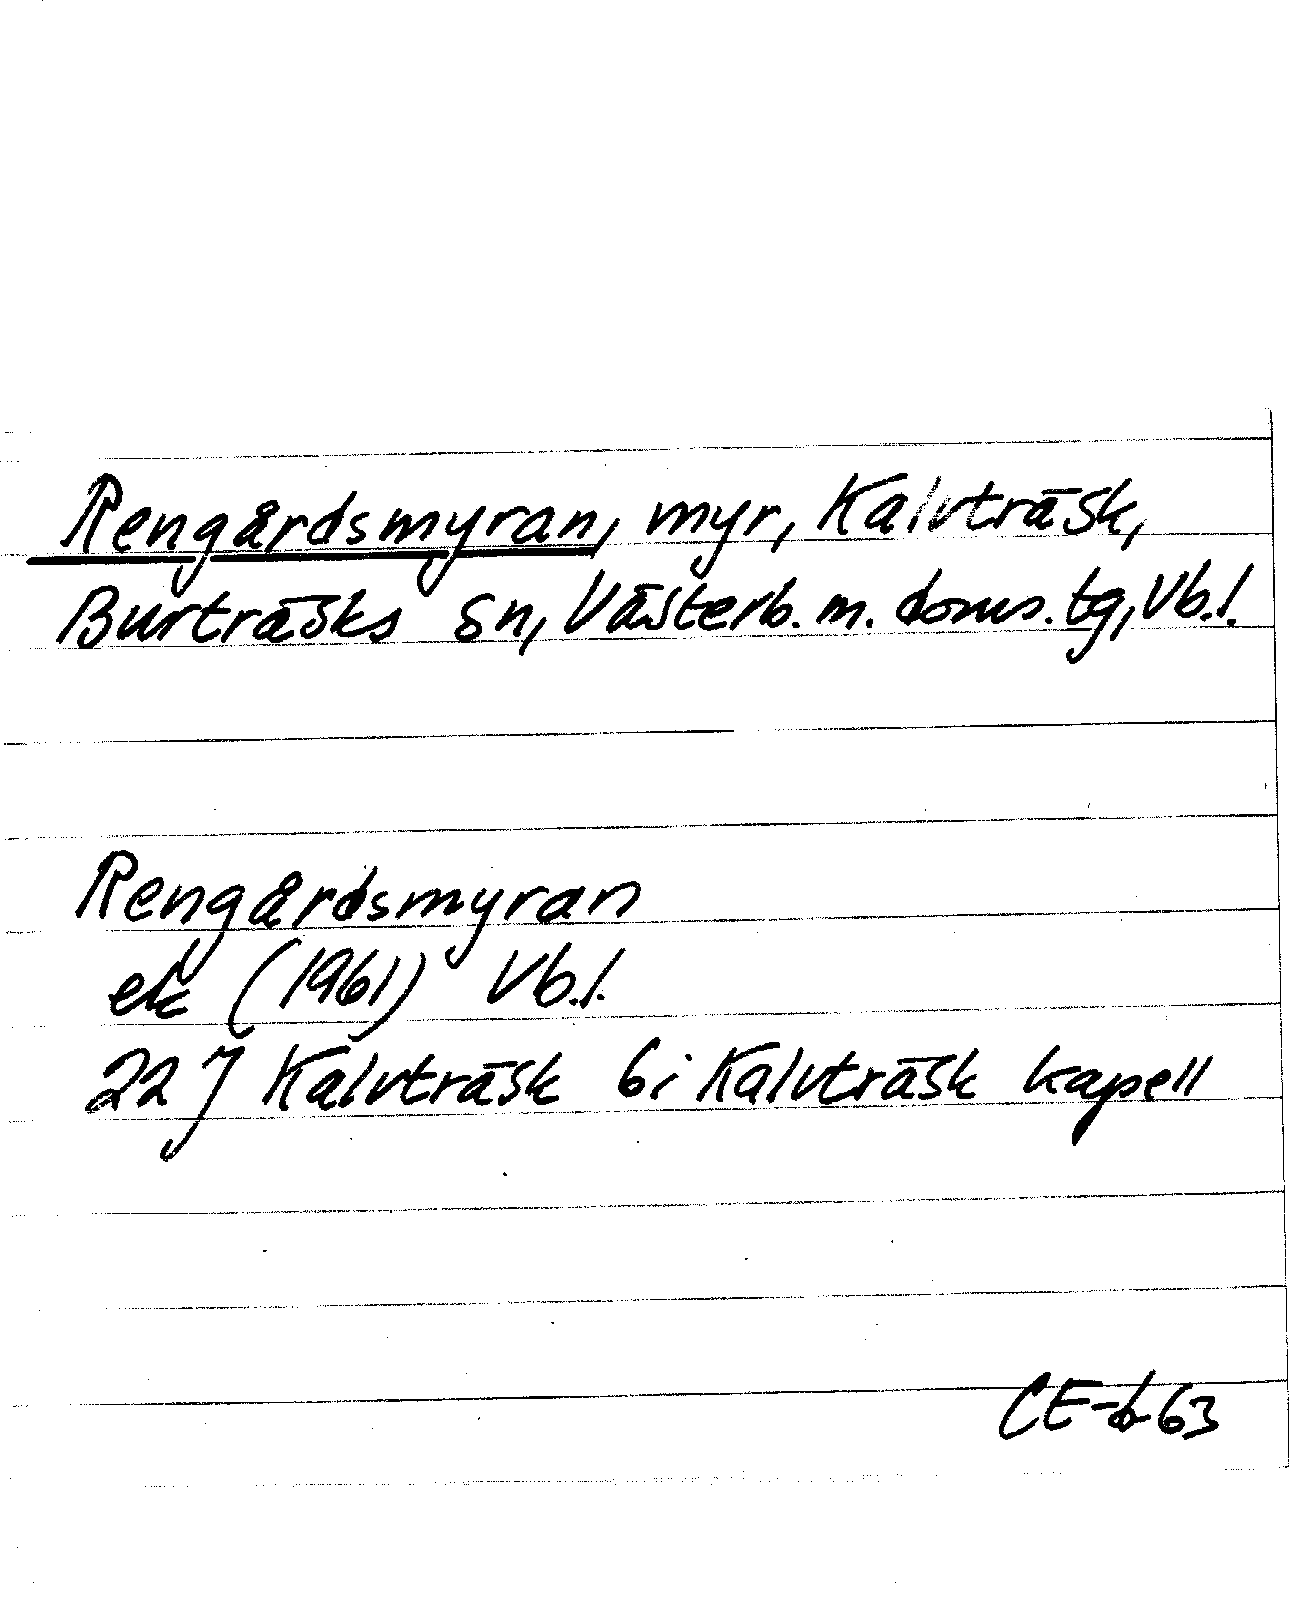 Rengårdsmyran, myr, Kalvträsk,
Burträsks sn, Västerb. m. doms. tg, Vb.l.
Rengårdsmyran
ek (1961) Vb.l.
22 J Kalvträsk 6i Kalvträsk kapell
CE-b-63